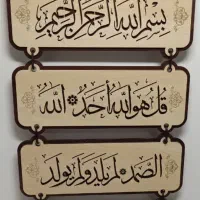 بِسْمِ اللهِ الرَّحْمٰنِ الرَّحِيْمِ
قُلْ هُوَ اللهُ أَحَدٌ ۞ اللهُ
الصَّمَدُ ۞ لَمْ يَلِدْ وَلَمْ يُولَدْ